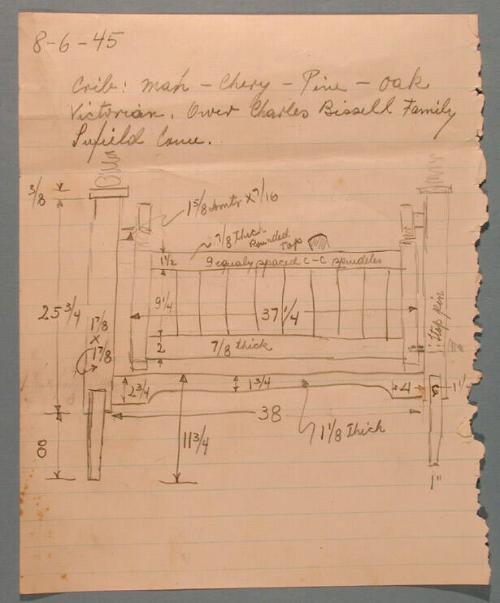 8-6-45
Crib: mah - Chery - Pine - oak
Victorian. Ower Charles Bissell Family
Sufield Conn.
3/8
1 5/8 x 7/16
~ 7/8 Thick
Rounded
Top
1 1/2
9 equaly spaced C-C spindles
9 1/4
37 1/4
25 3/4
1 7/8
x
1 7/8
2
7/8 thick
Stop pin
2 3/4
1 3/4
4
38
8
11 3/4
1 1/8 Thick
1"